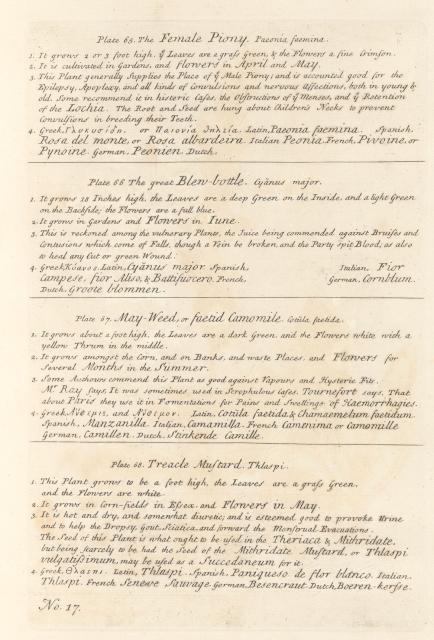 Plate 65. The Female Piony. Paeonia faemina.
1. It grows 2 or 3 foot high, ye Leaves are a grass Green, & the Flowers a fine Crimson.
2. It is cultivated in Gardens, and flowers in April and May.
3. This Plant generally Supplies the Place of ye Male Piony; and is accounted good for the
Epilepsy, Apoplexy, and all kinds of Convulsions and nervous Affections, both in young &
old. Some recommend it in histeric Cases, the Obstructions of ye Menses, and ye Retention
of the Lochia. The Root and Seed are hung about Children's Necks to prevent
Convulsions in breeding their Teeth.
4. Greek, Γλυκυσίδη. or Παιονία Θηλεία. Latin, Paeonia faemina. Spanish.
Rosa del monte, or Rosa albardeira. Italian Peonia. French, Pivoine, or
Pynoine. German, Peonien. Dutch.
Plate 66 The great Blew-bottle. Cyanus major.
1. It grows 18 Inches high, the Leaves are a deep Green on the Inside, and a light Green
on the Backside; the Flowers are a full blue.
2. It grows in Gardens and Flowers in June.
3. This is reckoned among the vulnerary Plants, the Juice being commended against Bruises and
Contusions which come of Falls, though a Vein be broken, and the Party spit Blood; as also
to heal any Cut or green Wound.
4. Greek, Κύανος. Latin, Cyanus major. Spanish, Italian, Fior
Campese, fior Aliso, & Battisuocero. French, German, Cornblum.
Dutch, Groote blommen.
Plate 67. May-Weed, or faetid Camomile. Cotula faetida.
1. It grows about a foot high, the Leaves are a dark Green, and the Flowers white with a
yellow Thrum in the middle.
2. It grows amongst the Corn, and on Banks, and waste Places, and Flowers for
Several Months in the Summer.
3. Some Authours commend this Plant as good against Vapours and Hysteric Fits.
Mr. Ray says It was sometimes used in Scrophulous Cases. Tournefort says, That
about Paris they use it in Fermentations for Pains and Swellings of Haemorrhagies.
4. Greek, Latin. Cotula faetida & Chamaemelum faetidum.
Spanish, Manzanilla. Italian, Camamilla. French Camenima or Camomille
German, Camillen. Dutch, Stinkende Camille.
Plate 68. Treacle Mustard. Thlaspi.
1. This Plant grows to be a foot high, the Leaves are a grass Green,
and the Flowers are white.
2. It grows in Corn-fields in Essex and Flowers in May.
3. It is hot and dry, and somewhat diuretic; and is esteemed good to provoke Urine
and to help the Dropsy, Gout, Sciatica, and forward the Menstrual Evacuations.
The Seed of this Plant is what ought to be used in the Theriaca & Mithridate,
but being scarcely to be had the Seed of the Mithridate Mustard, or Thlaspi
vulgatissimum, may be used as a Succedaneum for it.
4. Greek, Θλάσπι. Latin, Thlaspi. Spanish, Paniqueso de flor blanco. Italian.
Thlaspi. French Seneve Sauvage. German, Besencraut. Dutch, Boeren-kersse.
No. 17.